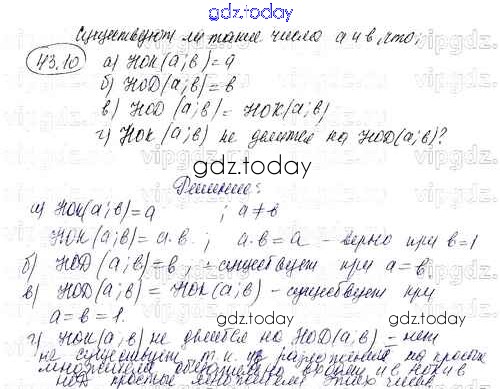 gdz.today
Существуют ли такие числа а и в, что:
43.10
а) НОК(а;в)=а
б) НОД(а;в)=в
в) НОД (а;в)= НОК(а;в)
г) НОК (а;в) не делится на НОД(а;в)?
gdz.today
Решение:
а) НОК(а;в)=а ; а≠в
НОК(а;в)=а·в ; а·в=а - верно при в=1
б) НОД (а;в)=в, - существует при а=в
в) НОД(а;в) = НОК(а;в) - существует при
а=в=1.
gdz.today
г) НОК(а;в) не делится на НОД(а;в) - нет
не существует, т.к. разложение на простые
множители а и в, НОК и в
НОД простые множители этих чисел